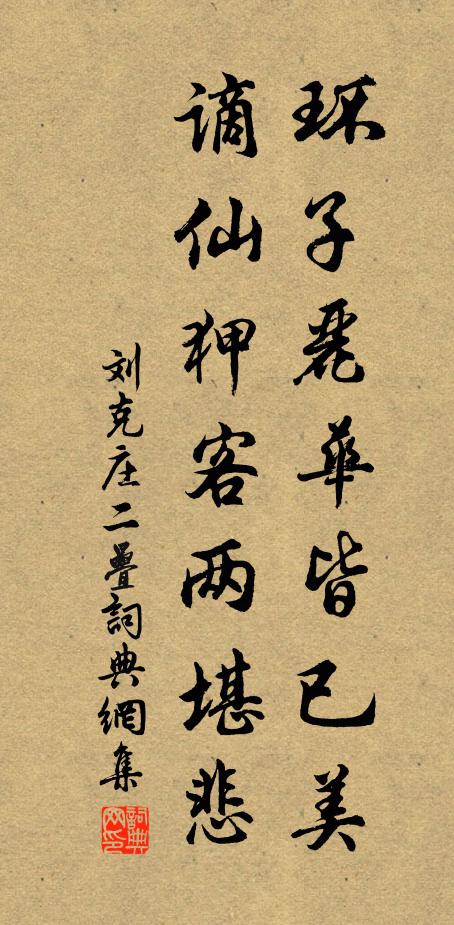 环子麗華皆已美
谪仙狎客两堪悲
刘克庄二疊詞典網集
詞典网印